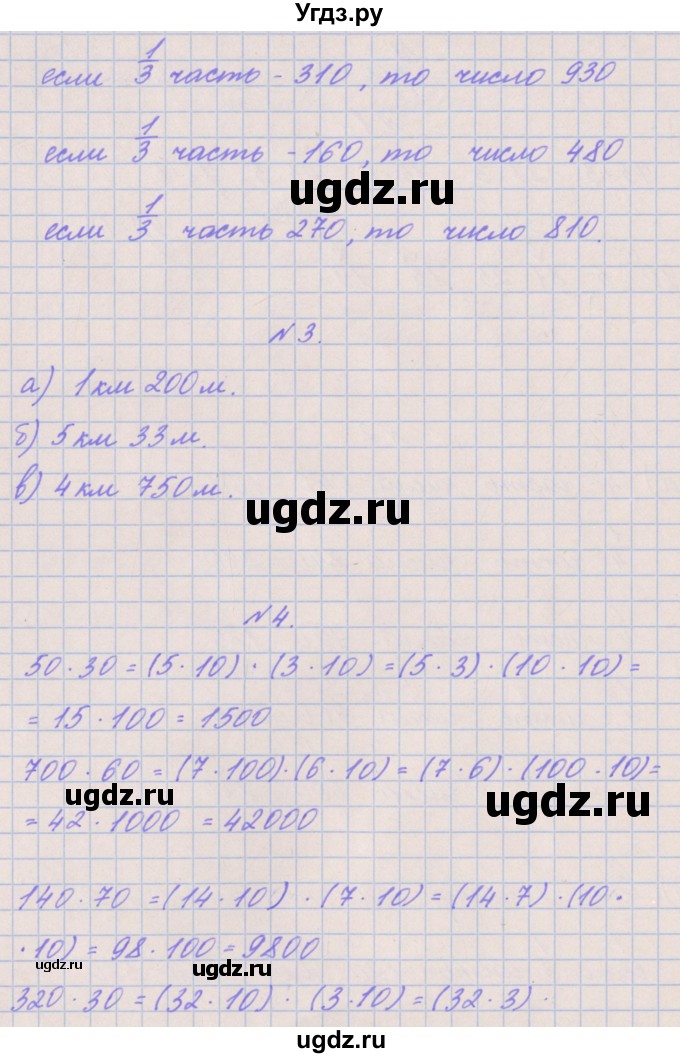 Угдз.ру
если 1/3 часть - 310, то число 930
если 1/3 часть - 160, то число 480
ugdz.ru
если 1/3 часть 270, то число 810.
№3.
а) 1 км 200 м.
б) 5 км 33 м.
в) 4 км 750 м.
ugdz.ru
№4.
50 · 30 = (5 · 10) · (3 · 10) = (5 · 3) · (10 · 10) =
= 15 · 100 = 1500
700 · 60 = (7 · 100) · (6 · 10) = (7 · 6) · (100 · 10) =
ugdz.ru
ugdz.ru
= 42 · 1000 = 42000
140 · 70 = (14 · 10) · (7 · 10) = (14 · 7) · (10 ·
· 10) = 98 · 100 = 9800
ugdz.ru
ugdz.ru
320 · 30 = (32 · 10) · (3 · 10) = (32 · 3) ·
ugdz.ru